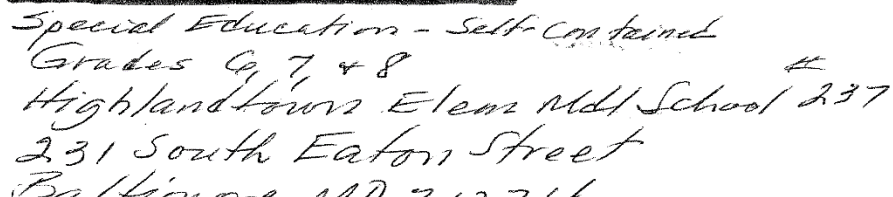 Special Education - Self-Contained
Grades 6, 7, & 8
Highlandtown Elem Mdl School #237
231 South Eaton Street
Baltimore MD